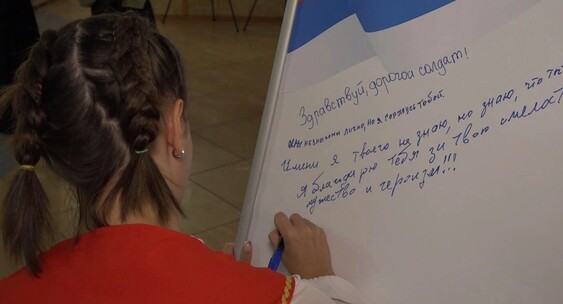 Здравствуй, дорогой солдат!
незнакомы лично, но я горжусь тобой
Имени я твоего не знаю, но знаю, что ты
Я благодарю тебя за твою смелость
мужество и героизм!!!